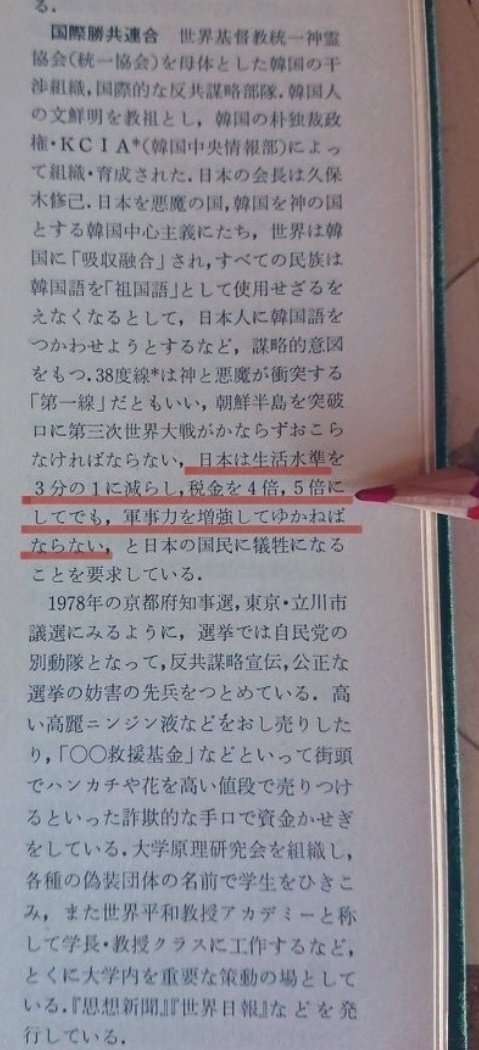 る.
国際勝共連合　世界基督教統一神霊
協会(統一協会)を母体とした韓国の干
渉組織,国際的な反共謀略部隊.韓国人
の文鮮明を教祖とし，韓国の朴独裁政
権・KCIA*(韓国中央情報部)によっ
て組織・育成された.日本の会長は久保
木修己.日本を悪魔の国,韓国を神の国
とする韓国中心主義にたち，世界は韓
国に「吸収融合」され,すべての民族は
韓国語を「祖国語」として使用せざるを
えなくなるとして，日本人に韓国語を
つかわせようとするなど，謀略的意図
をもつ.38度線*は神と悪魔が衝突する
「第一線」だともいい，朝鮮半島を突破
口に第三次世界大戦がかならずおこら
なければならない，日本は生活水準を
3分の1に減らし,税金を4倍，5倍に
してでも，軍事力を増強してゆかねば
ならない，と日本の国民に犠牲になる
ことを要求している.
1978年の京都府知事選,東京・立川市
議選にみるように，選挙では自民党の
別動隊となって,反共謀略宣伝,公正な
選挙の妨害の先兵をつとめている．高
い高麗ニンジン液などをおし売りした
り,「○○救援基金」などといって街頭
でハンカチや花を高い値段で売りつけ
るといった詐欺的な手口で資金かせぎ
をしている.大学原理研究会を組織し,
各種の偽装団体の名前で学生をひきこ
み，また世界平和教授アカデミーと称
して学長・教授クラスに工作するなど,
とくに大学内を重要な策動の場として
いる.『思想新聞』『世界日報』などを発
行している.